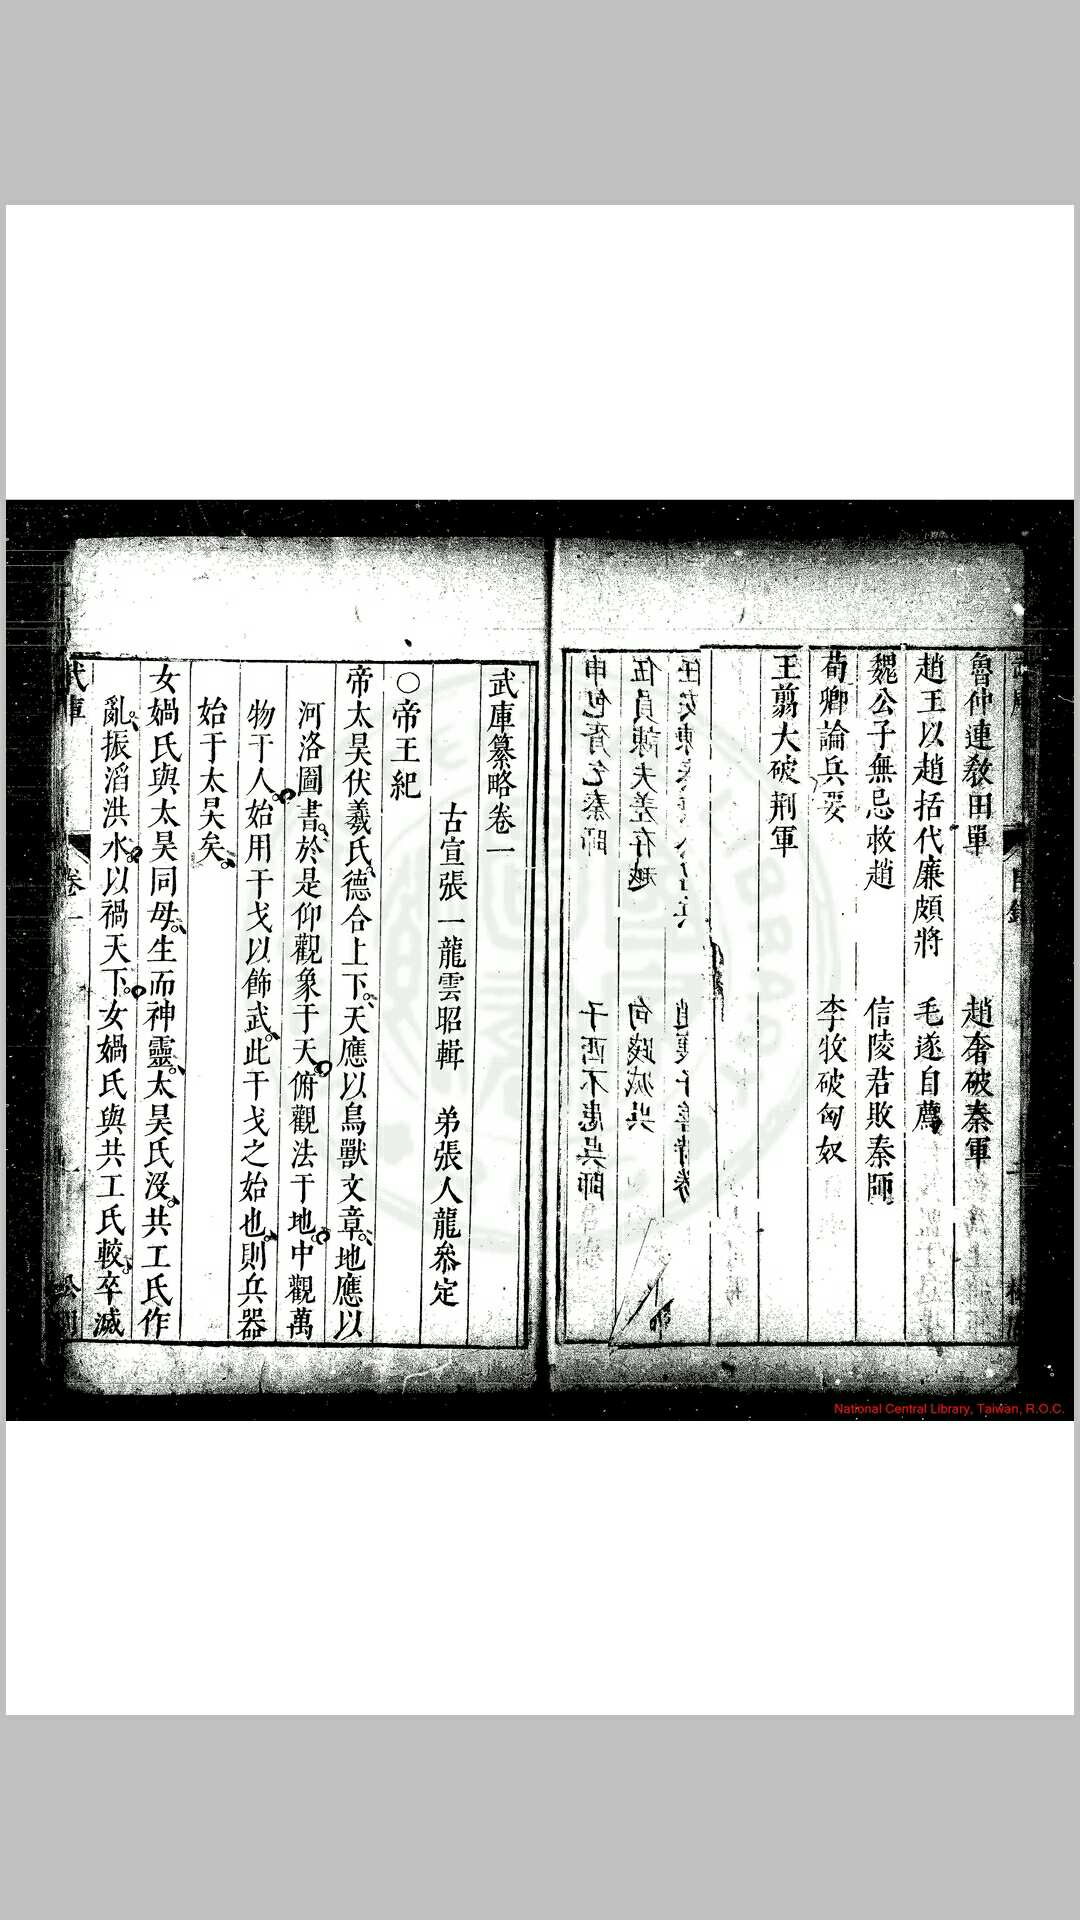 魯仲連敎田單　趙奢破秦軍
趙王以趙括代廉頗將　毛遂自薦
魏公子無忌救趙　信陵君敗秦師
荀卿論兵要　李牧破匈奴
王翦大破荊軍
伍員諫夫差存越　句踐滅吳
申包胥乞秦師　子西不患吳師
武庫纂略卷一
古宣張一龍雲昭輯　弟張人龍叅定
○帝王紀
帝太昊伏羲氏德合上下、天應以鳥獸文章、地應以
河洛圖書、於是仰觀象于天俯觀法于地中觀萬
物于人始用干戈以飾武、此干戈之始也、則兵器
始于太昊矣。
女媧氏與太昊同母、生而神靈、太昊氏沒、共工氏作
亂、振滔洪水以禍天下。女媧氏與共工氏較、卒滅
武庫
卷一
National Central Library, Taiwan, R.O.C.